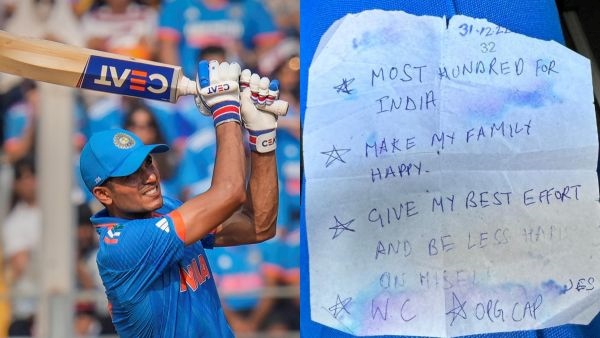 CEAT
31.12.22
32
MOST HUNDRED FOR
INDIA
MAKE MY FAMILY
HAPPY.
GIVE MY BEST EFFORT
AND BE LESS
ON MYSELF
W.C ORG.CAP